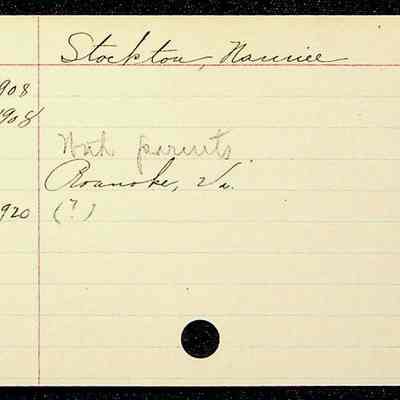 Stockton, Nannie
908
1908
With parents
Roanoke, Va.
920 (?)